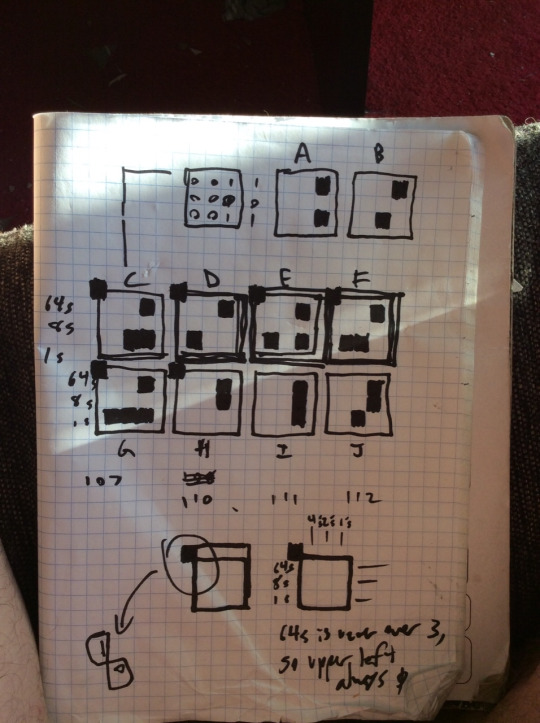 A B
0 0 1 1
0 0 0 0
0 0 1 1
C D E F
64s
8s
1s
64s
8s
1s
G H I J
107 110 111 112
4s 2s 1s
64s
8s
1s
64s is never over 3,
so upper left
always 0
1
0